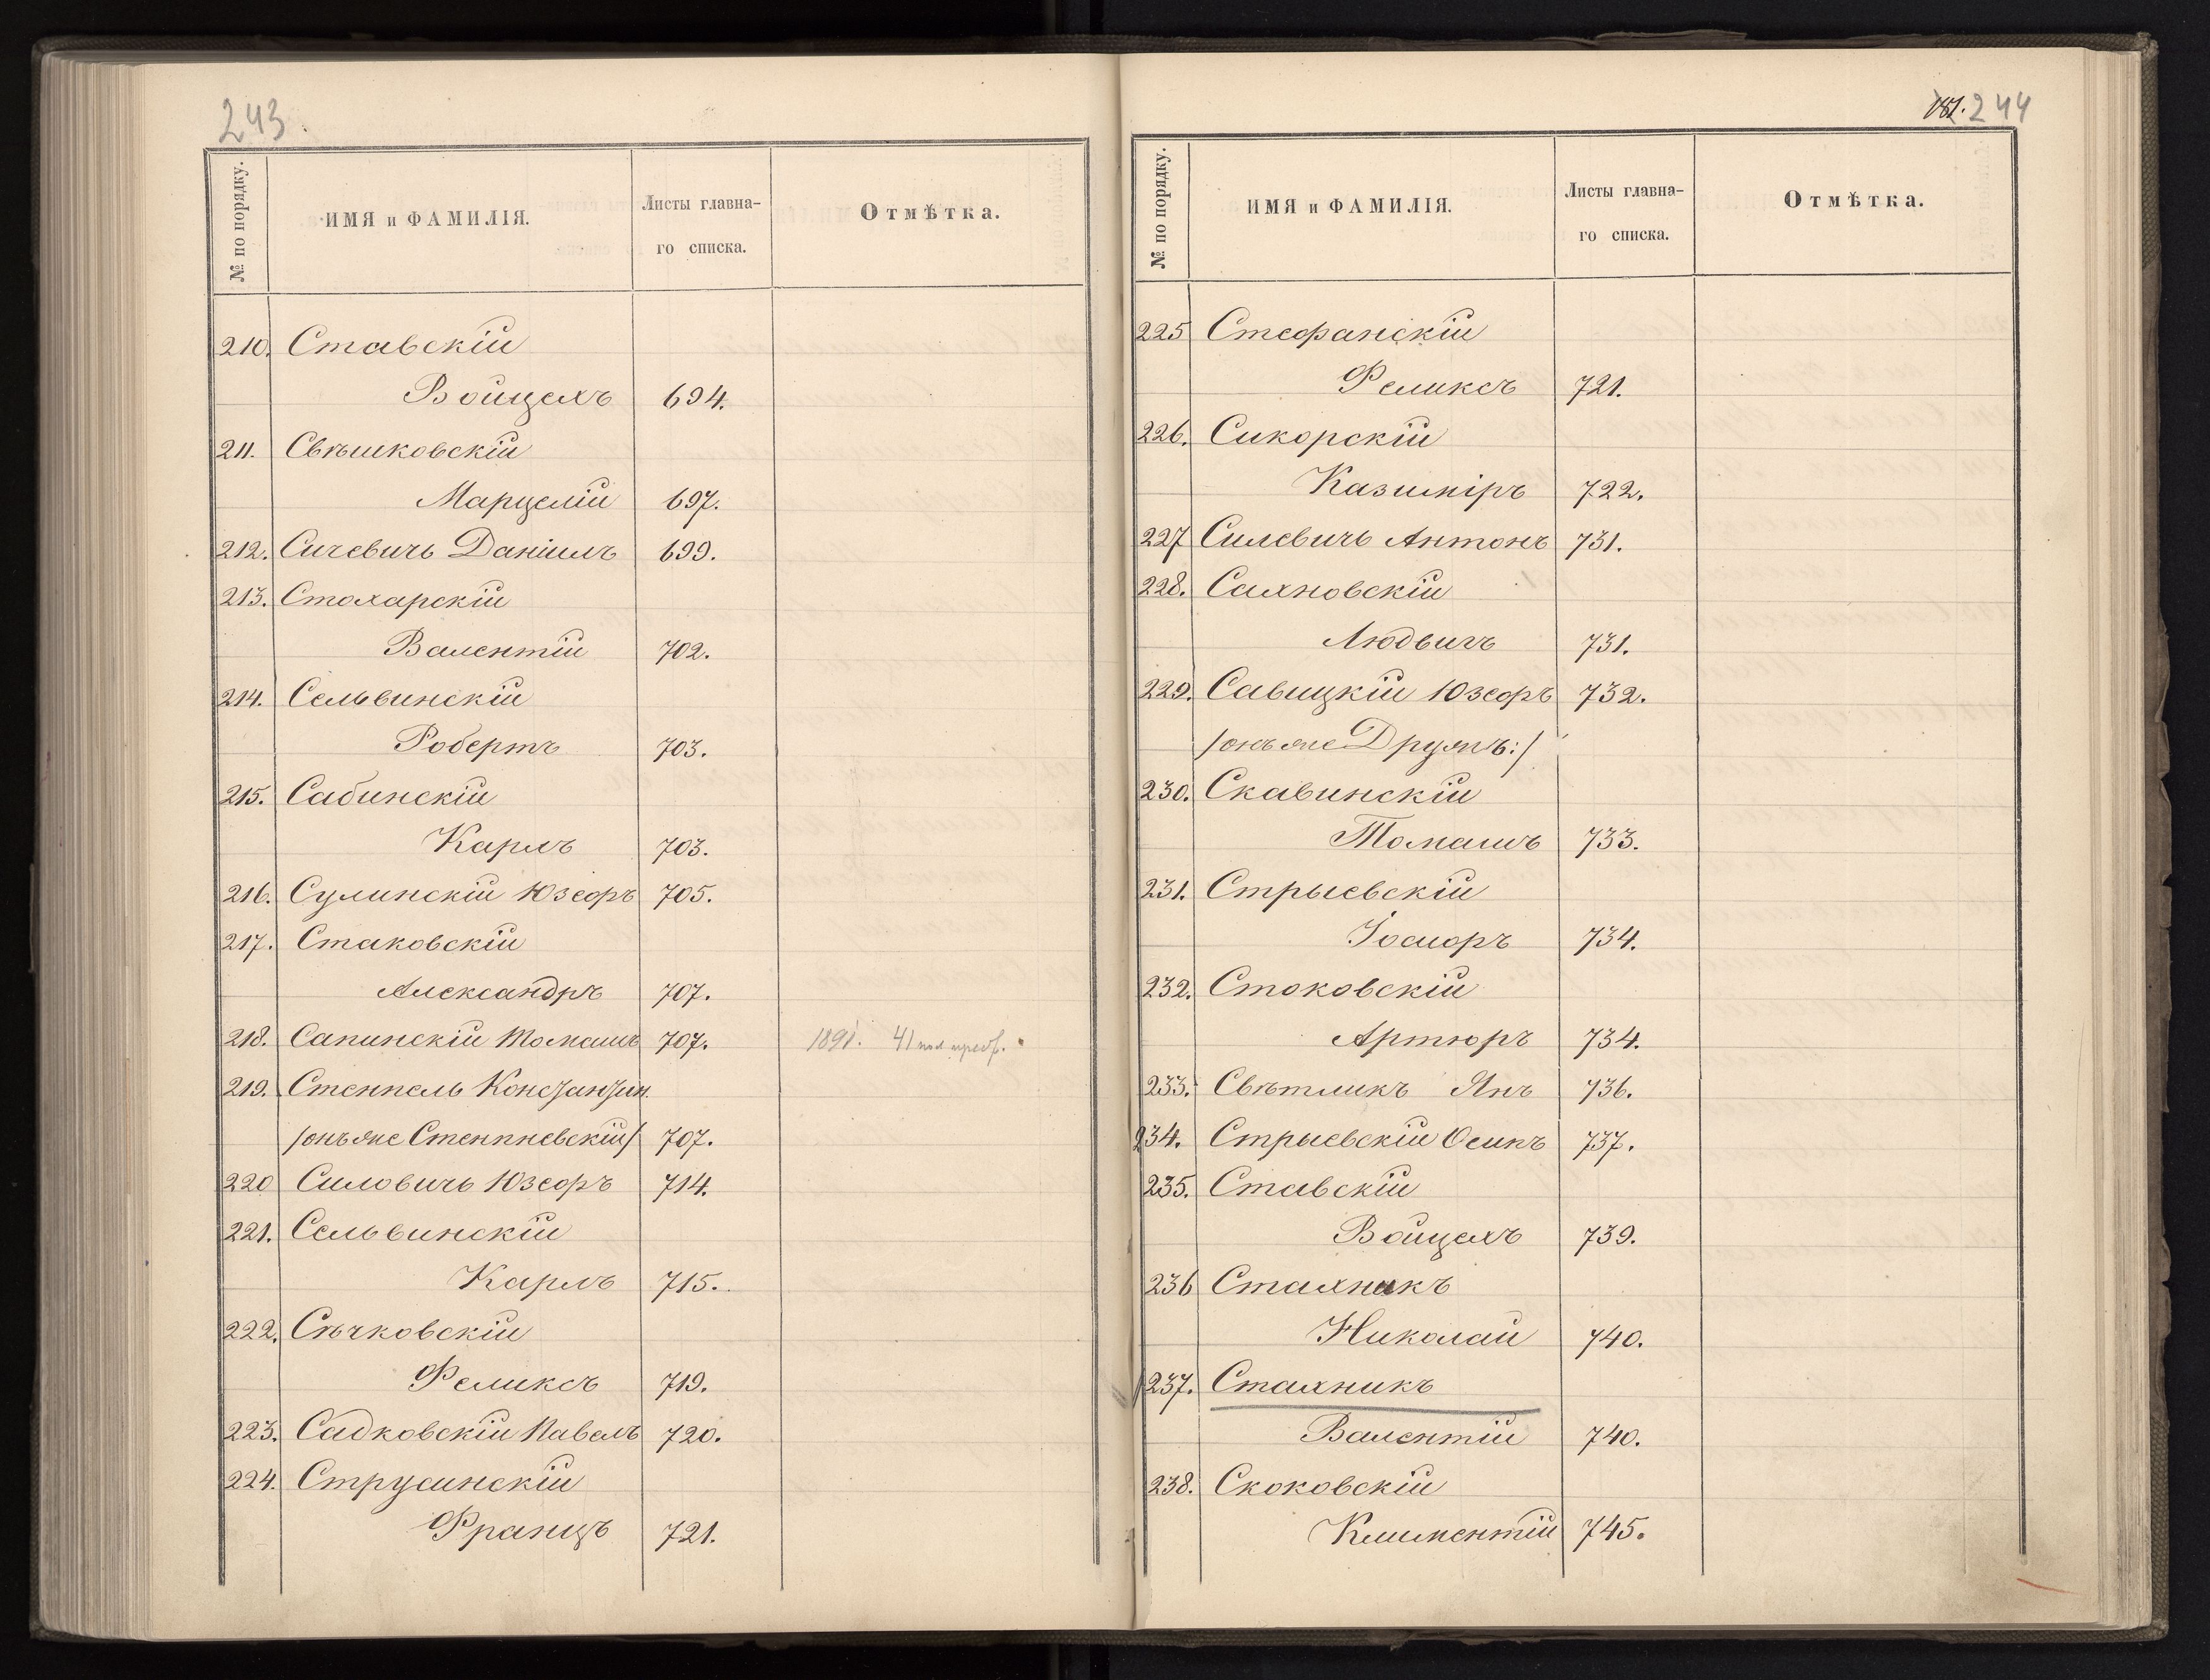 243
№ по порядку.
ИМЯ и ФАМИЛІЯ.
Листы главна-
го списка.
Отмѣтка.
210. Ставскій
Войцехъ 694.
211. Свѣшковскій
Марцелій 697.
212. Сичевичь Даніилъ 699.
213. Столарскій
Валентій 702.
214. Сельвинскій
Робертъ 703.
215. Сабинскій
Карлъ 703.
216. Сулинскій Юзефъ 705.
217. Стаковскій
Александръ 707.
218. Сапинскій Томашъ 707. 1891. 41
219. Стемпель Константин.
/онъ же Стемпневскій/ 707.
220 Силовичь Юзефъ 714.
221. Сельвинскій
Карлъ 715.
222. Сѣчковскій
Феликсъ 719.
223. Садковскій Павелъ 720.
224. Струсинскій
Францъ 721.
181. 244
№ по порядку.
ИМЯ и ФАМИЛІЯ.
Листы главна-
го списка.
Отмѣтка.
225 Стефанскій
Феликсъ 721.
226. Сикорскій
Казиміръ 722.
227 Силевичь Антонъ 731.
228. Сахновскій
Людвигъ 731.
229. Савицкій Юзефъ 732.
/онъ же Друпъ:/
230. Скавинскій
Томашъ 733.
231. Стрыевскій
Іосифъ 734.
232. Стоковскій
Артюръ 734.
233. Свѣтликъ Янъ 736.
234. Стрыевскій Осипъ 737.
235. Ставскій
Войцехъ 739.
236 Стахникъ
Николай 740.
237. Стахникъ
Валентій 740.
238. Скоковскій
Климентій 745.